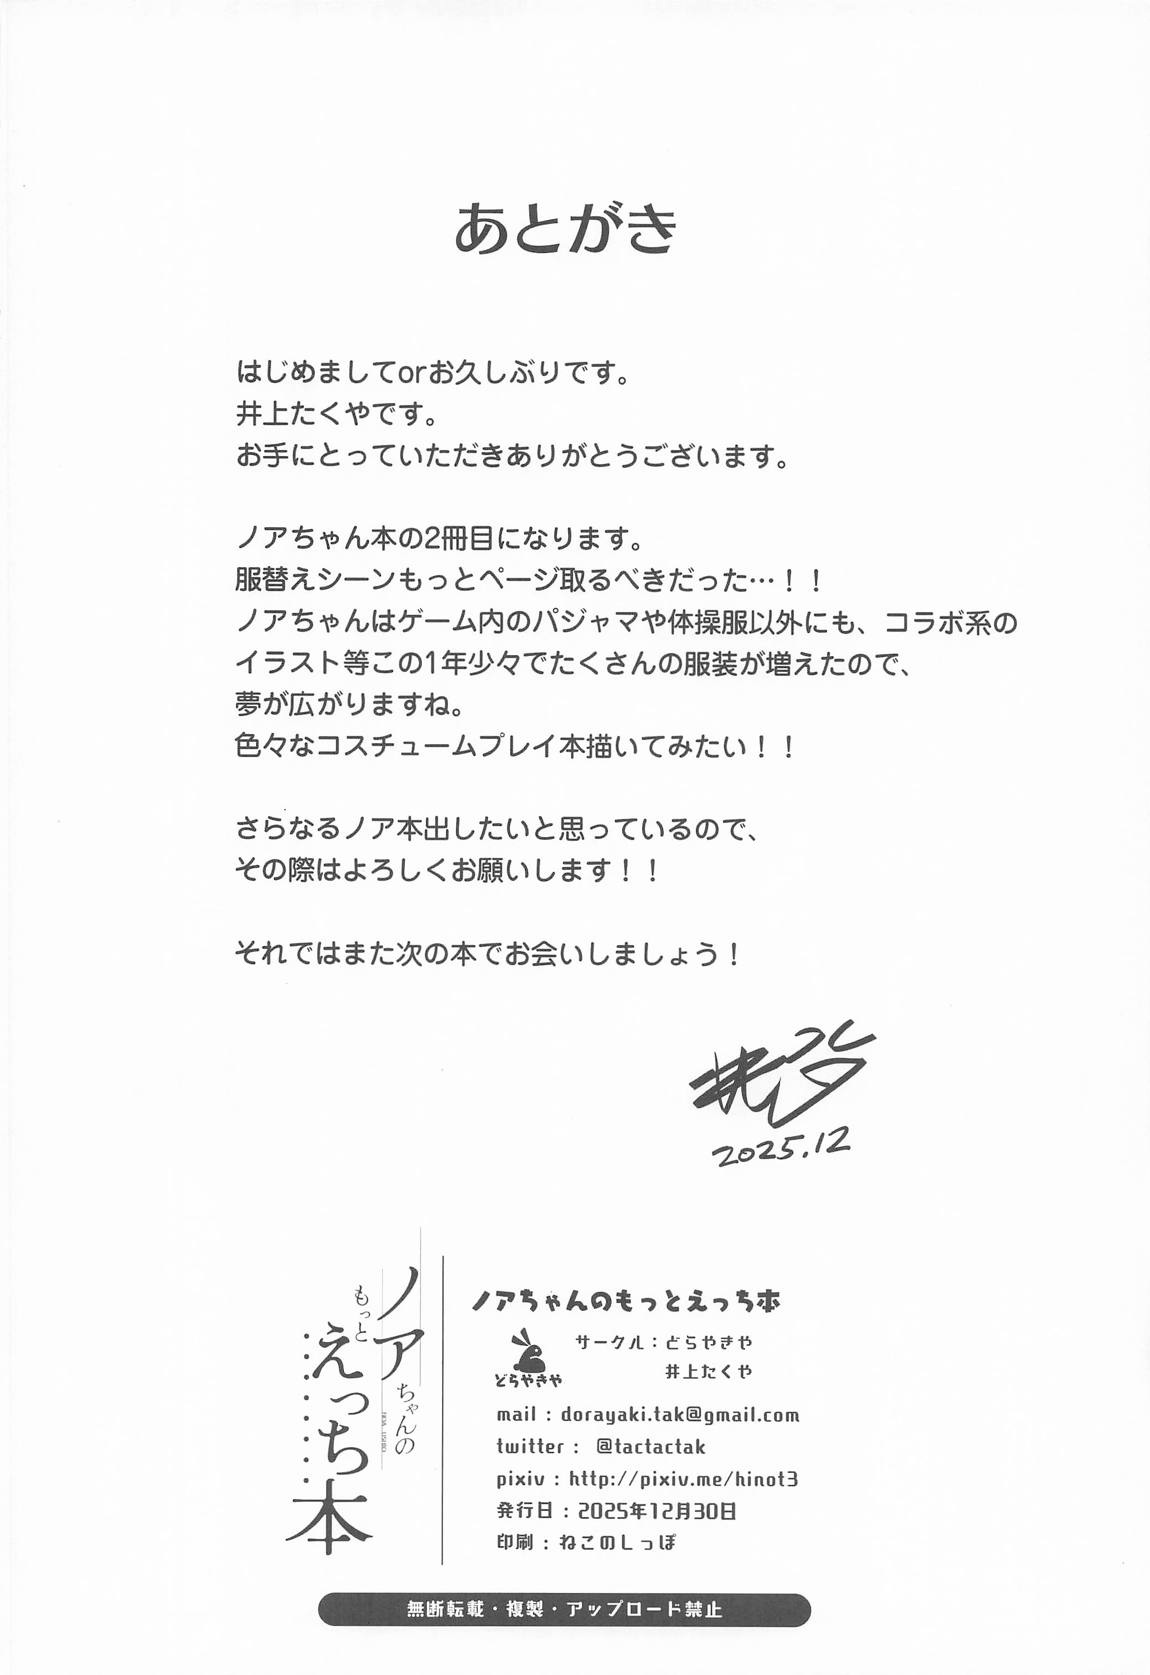 あとがき
はじめましてorお久しぶりです。
井上たくやです。
お手にとっていただきありがとうございます。
ノアちゃん本の2冊目になります。
服替えシーンもっとページ取るべきだった…！！
ノアちゃんはゲーム内のパジャマや体操服以外にも、コラボ系の
イラスト等この1年少々でたくさんの服装が増えたので、
夢が広がりますね。
色々なコスチュームプレイ本描いてみたい！！
さらなるノア本出したいと思っているので、
その際はよろしくお願いします！！
それではまた次の本でお会いしましょう！
2025.12
ノアちゃんの
もっと
えっち本
ノアちゃんのもっとえっち本
どらやきや
サークル：どらやきや
井上たくや
mail : dorayaki.tak@gmail.com
twitter : @tactactak
pixiv : http://pixiv.me/hinot3
発行日 : 2025年12月30日
印刷 : ねこのしっぽ
無断転載・複製・アップロード禁止